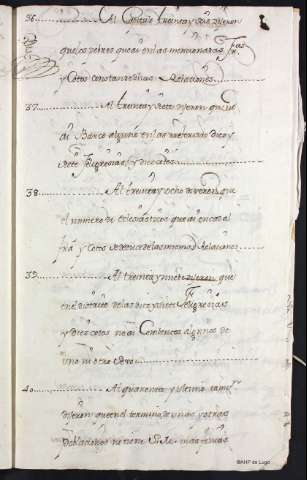 36 Al Capitulo treinta y seis dijeron
que los pobres que ai en las mencionadas fras
y Cotos constan de dhas Relaciones
37 Al treinta y siete dijeron que no
ai Barco alguno en las
siete feligresias, y diez cotos
38 Al treinta y ocho dijeron que
el numero de eclesiasticos que ai en cada
fra y Coto de las mismas Relaciones
39 Al treinta y nueve dijeron que
en el distrito de las diez y siete feligresias
y diez cotos no ai Conventos algunos de
uno ni otro sexo
40 Al quarenta y ultimo
dijeron que en el termino de unas y otras
Poblaciones no tiene S. M. mas fincas
©AHP de Lugo